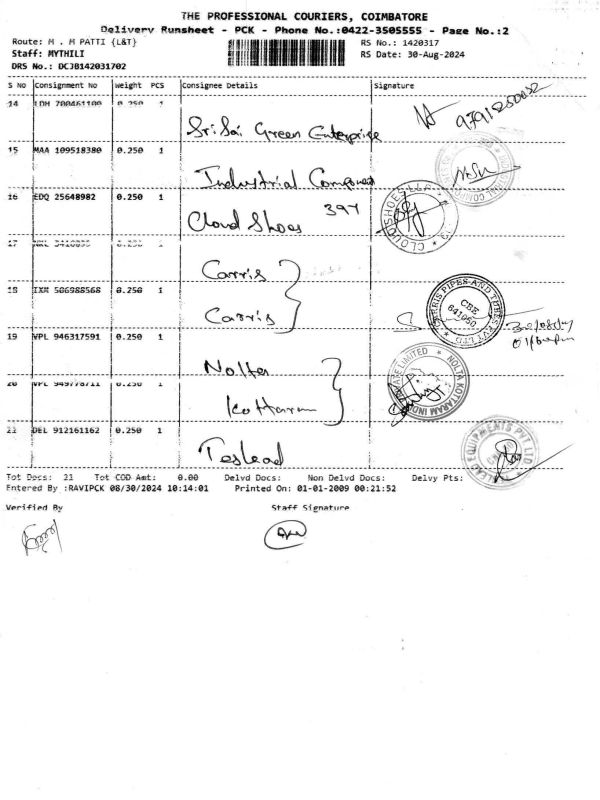 THE PROFESSIONAL COURIERS, COIMBATORE
Delivery Runsheet - PCK - Phone No.:0422-3505555 - Page No.:2
Route: M . M PATTI {L&T}
RS No.: 1420317
Staff: MYTHILI
RS Date: 30-Aug-2024
DRS No.: DCJB142031702
S No Consignment No Weight PCS Consignee Details Signature
14 LDH 700461100 0.250 1
Sri Sai Green Enterprise
15 MAA 109518380 0.250 1
Industrial Component
16 EDQ 25648982 0.250 1
Cloud Shoes 394
17 0.250 1
Carris
18 IXM 506988568 0.250 1
Carris
CARRIS PIPES AND TUBES PVT LTD
CBE
641050
19 VPL 946317591 0.250 1
Nolta
NOLTA KOTTARAM INDIA PRIVATE LIMITED
20 VPL 949778711 0.250 1
Kottaram
21 DEL 912161162 0.250 1
Teslead
TESLEAD EQUIPMENTS PVT LTD
Tot Docs: 21 Tot COD Amt: 0.00 Delvd Docs: Non Delvd Docs: Delvy Pts:
Entered By :RAVIPCK 08/30/2024 10:14:01 Printed On: 01-01-2009 00:21:52
Verified By Staff Signature